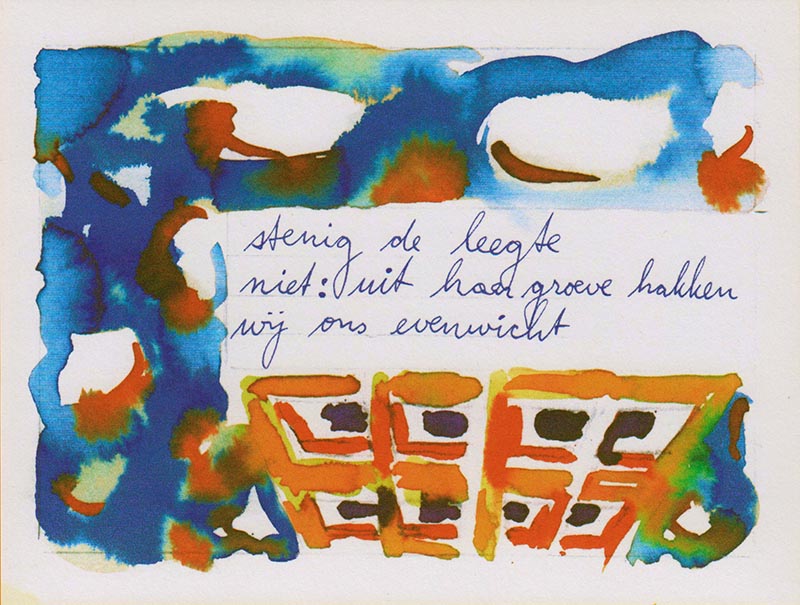 stenig de leegte
niet: uit haar groeve hakken
wij ons evenwicht